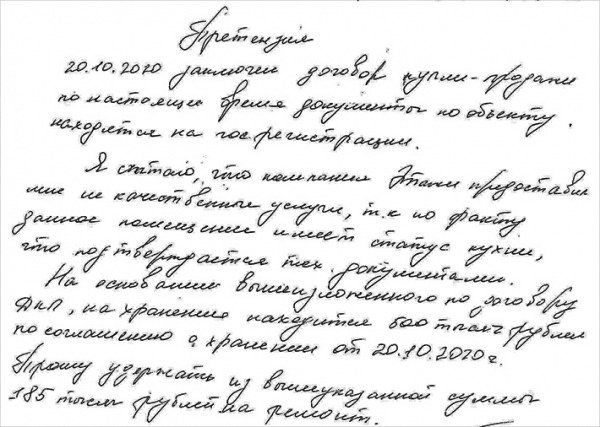 Претензия
20.10.2020 заключен договор купли-продажи
по настоящее время документы по объекту
находятся на гос регистрации.
Я считаю, что компания Этажи предоставила
мне не качественные услуги, т.к по факту
данное помещение имеет статус кухни,
что подтверждается тех. документами.
На основании вышеизложенного по договору
ДКП, на хранении находится 600 тысяч рублей
по соглашению о хранении от 20.10.2020 г.
Прошу удержать из вышеуказанной суммы
185 тысяч рублей на ремонт.